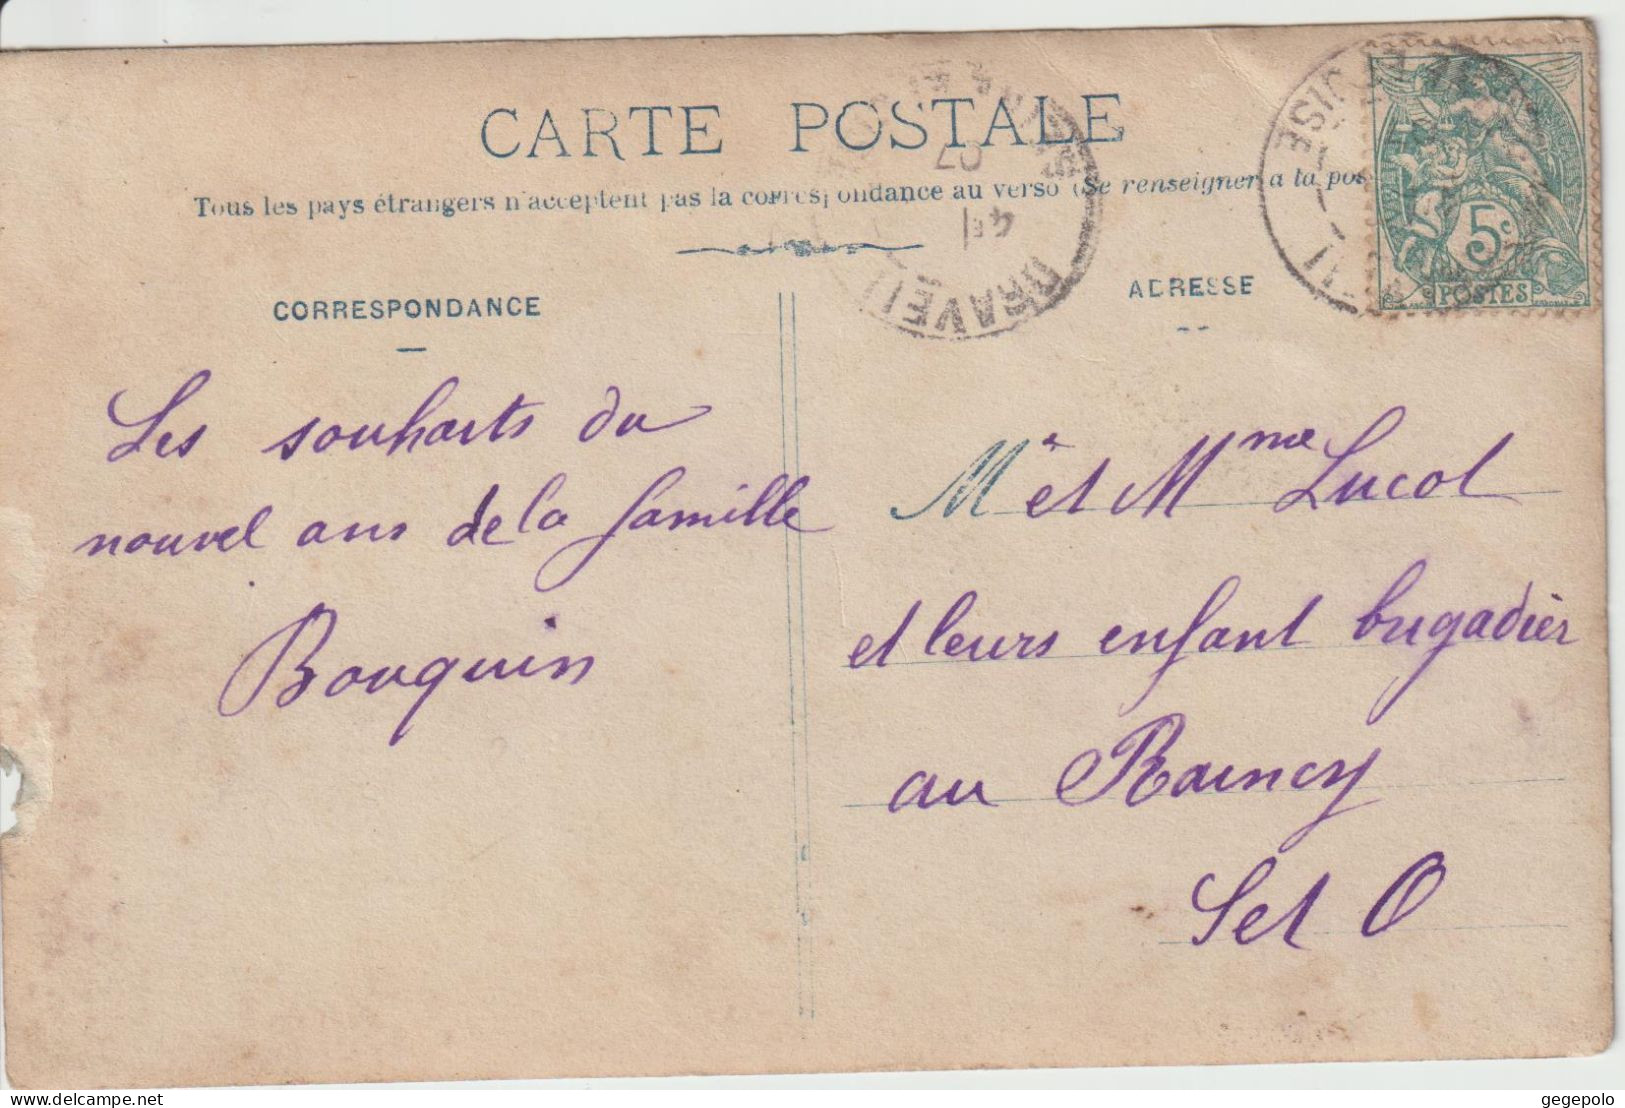 CARTE POSTALE
Tous les pays étrangers n'acceptent pas la correspondance au verso (Se renseigner à la pos
CORRESPONDANCE
ADRESSE
Les souhaits du
nouvel ans de la famille
Bouquin
Mr et Mme Lucot
et leurs enfant brigadier
au Raincy
Set O
DRAVEIL
07
5c
POSTES
www.delcampe.net
gegepolo